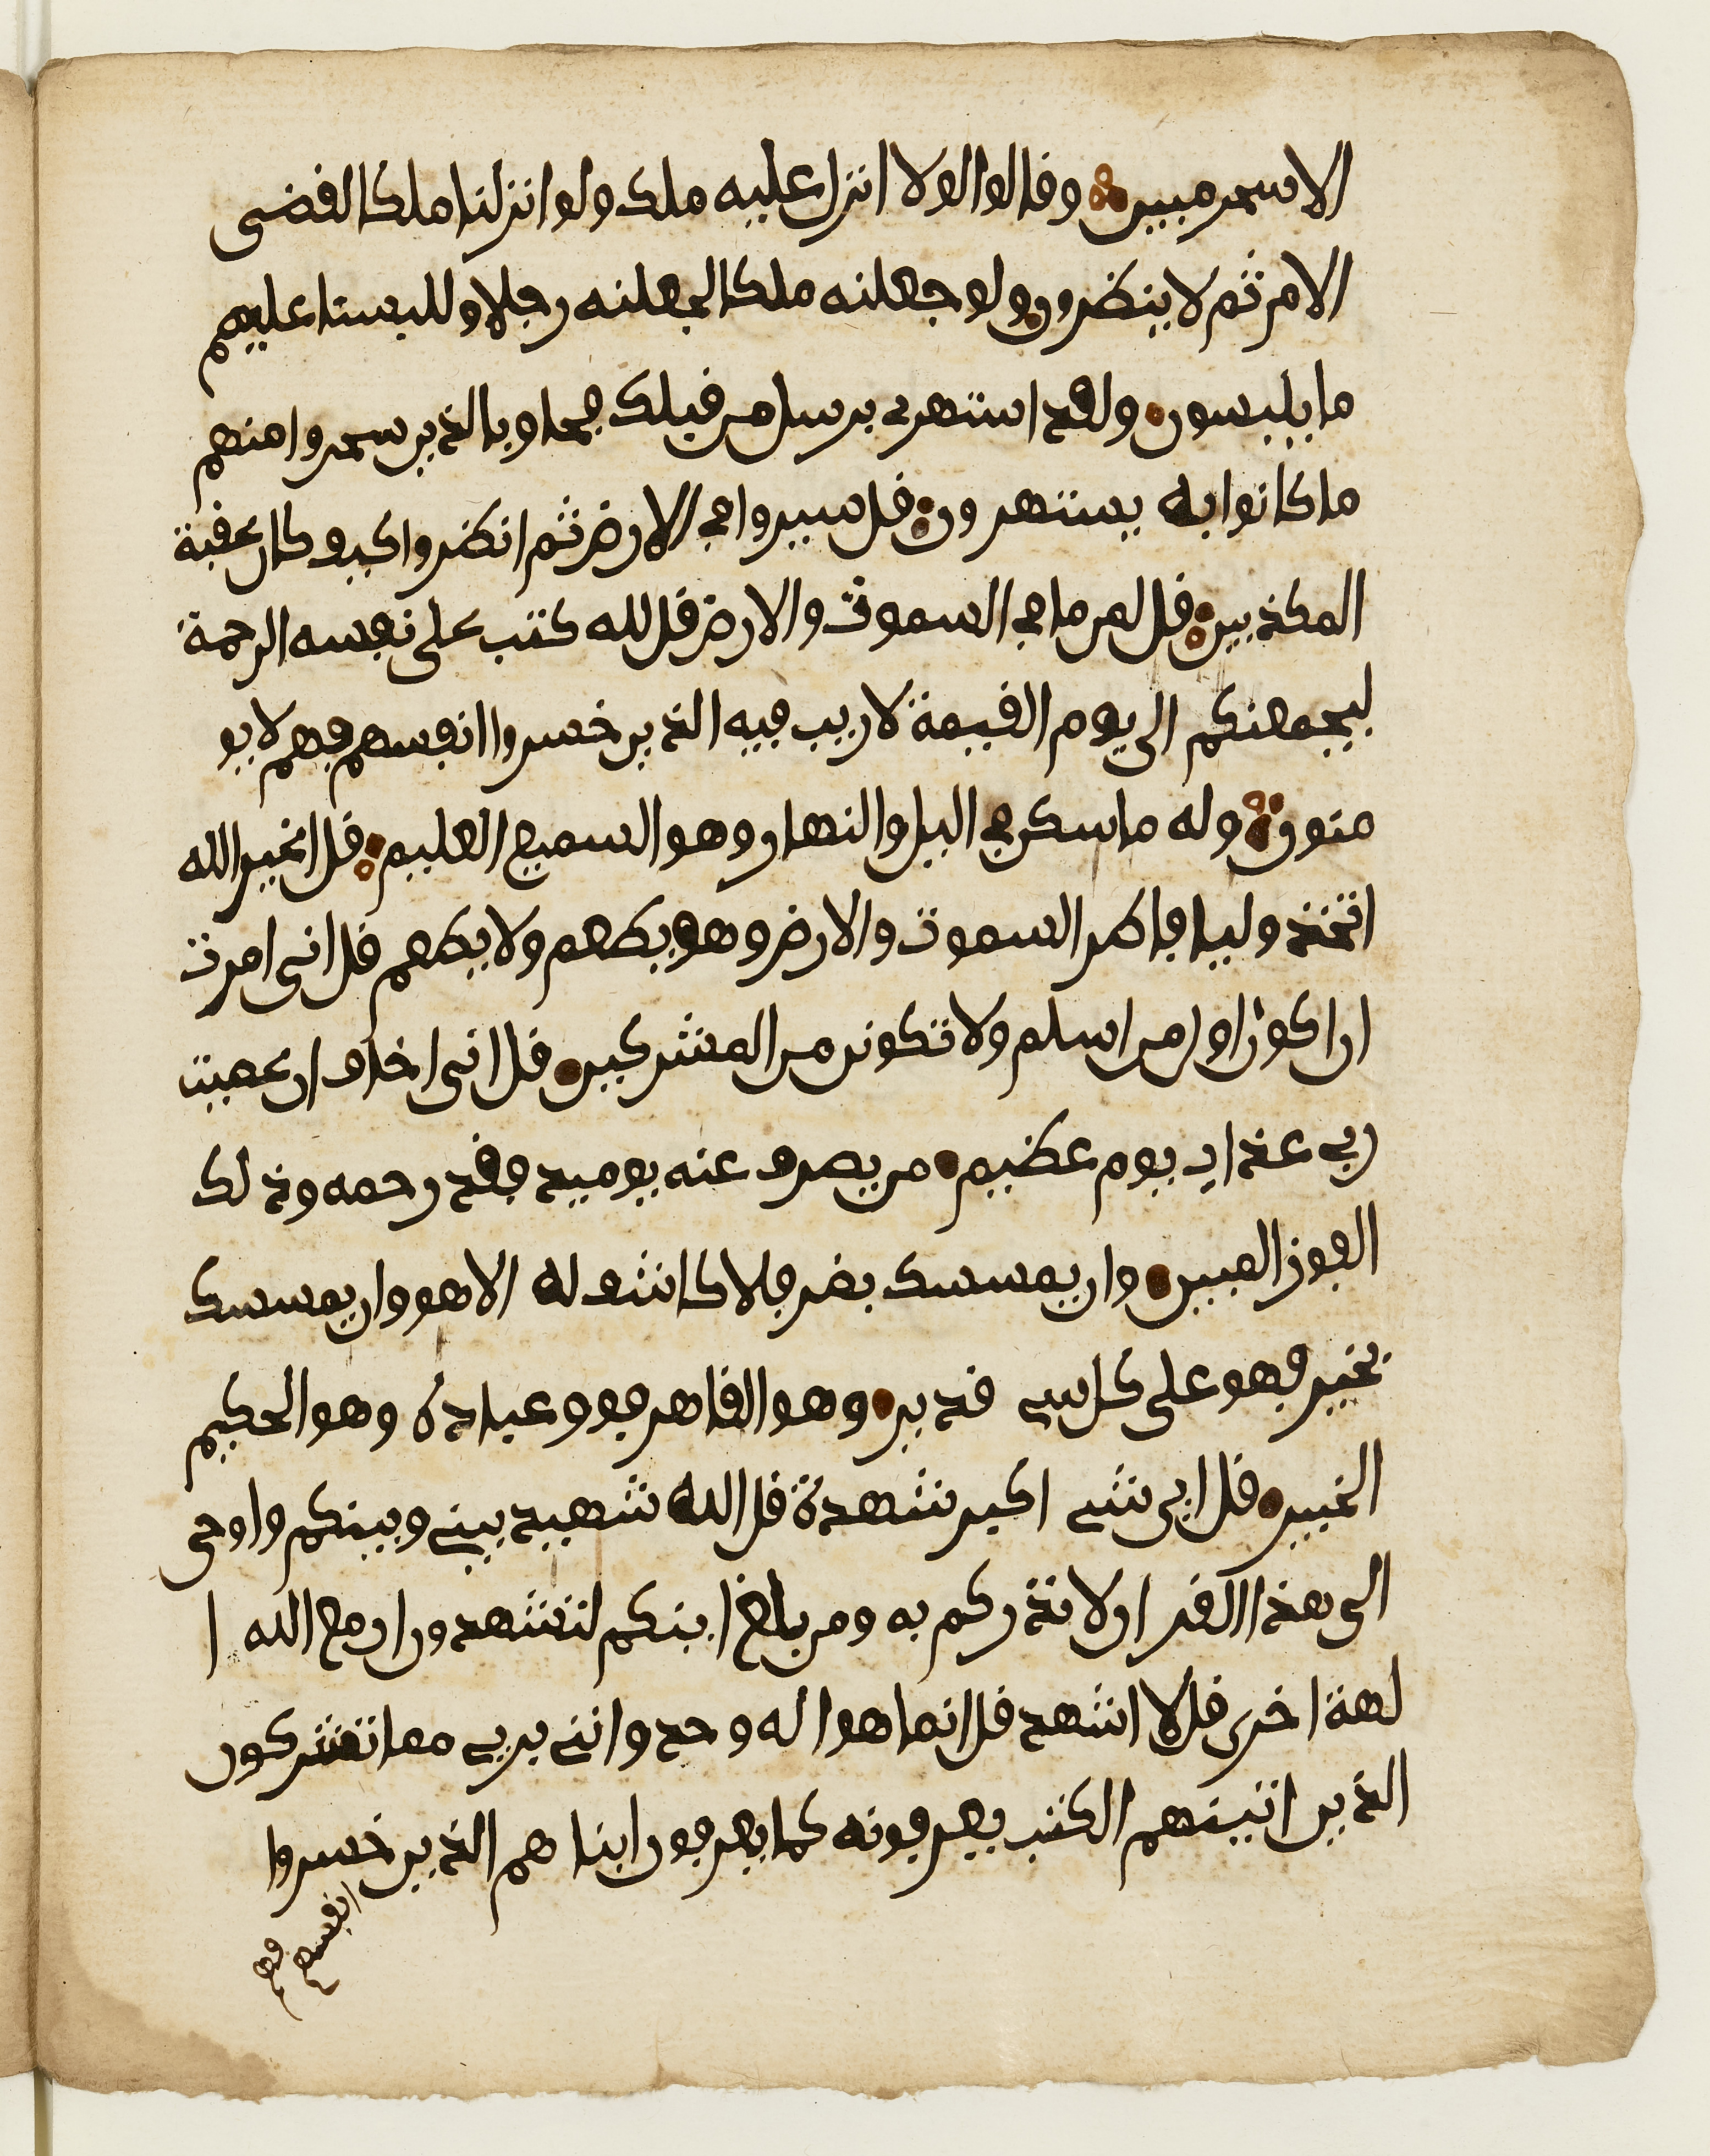 الا سحر مبين وقالوا لولا انزل عليه ملك ولو انزلنا ملكا لقضى
الامر ثم لا ينظرون ولو جعلنه ملكا لجعلنه رجلا وللبسنا عليهم
ما يلبسون ولقد استهزى برسل من قبلك فحاق بالذين سخروا منهم
ما كانوا به يستهزون قل سيروا في الارض ثم انظروا كيف كان عقبة
المكذبين قل لمن ما في السموت والارض قل لله كتب على نفسه الرحمة
ليجمعنكم الى يوم القيمة لا ريب فيه الذين خسروا انفسهم فهم لا يو
منون وله ما سكن في اليل والنهار وهو السميع العليم قل اغير الله
اتخذ وليا فاطر السموت والارض وهو يطعم ولا يطعم قل اني امرت
ان اكون اول من اسلم ولا تكونن من المشركين قل اني اخاف ان عصيت
ربي عذاب يوم عظيم من يصرف عنه يوميذ فقد رحمه وذلك
الفوز المبين وان يمسسك بضر فلا كاشف له الا هو وان يمسسك
بخير فهو على كل شي قدير وهو القاهر فوق عباده وهو الحكيم
الخبير قل اي شي اكبر شهدة قل الله شهيد بيني وبينكم واوحي
الى هذا القران لانذركم به ومن بلغ اينكم لتشهدون ان مع الله ا
لهة اخرى قل لا اشهد قل انما هو اله وحد وانني بري مما تشركون
الذين اتينهم الكتب يعرفونه كما يعرفون ابناهم الذين خسروا
انفسهم
فهم